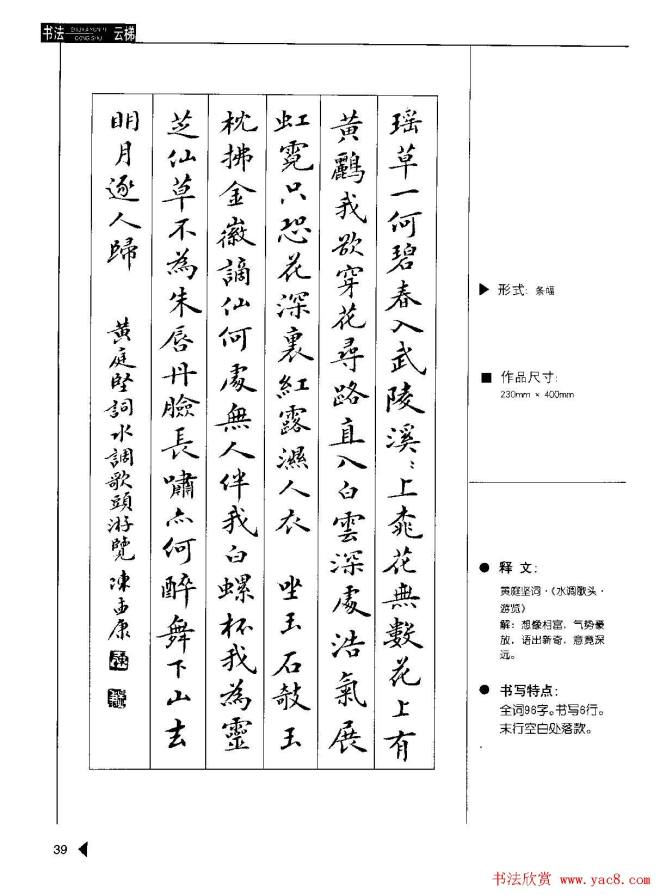 书法 云梯
瑶草一何碧春入武陵溪〻上桃花無數花上有
黄鸝我欲穿花尋路直入白雲深處浩氣展
虹霓只恐花深裏紅露濕人衣 坐玉石敧玉
枕拂金徽謫仙何處無人伴我白螺杯我為靈
芝仙草不為朱唇丹臉長嘯亦何醉舞下山去
明月逐人歸
黄庭堅詞水調歌頭游覽 陳
康
▶ 形式: 条幅
■ 作品尺寸:
230mm × 400mm
● 释 文:
黄庭坚词·(水调歌头·
游览)
解: 想像丰富, 气势豪
放, 语出新奇, 意境深
远。
● 书写特点:
全词96字。书写6行。
末行空白处落款。
39
书法欣赏 www.yac8.com